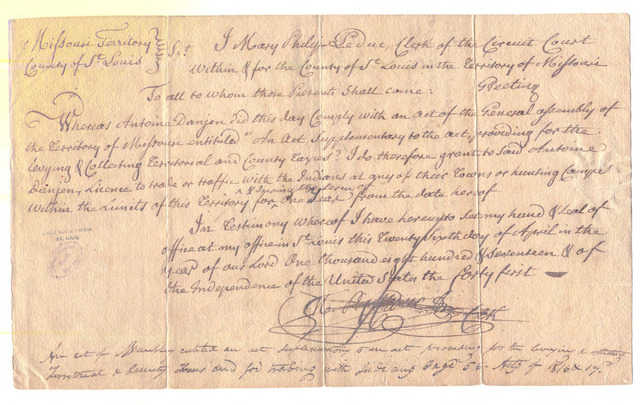 Missouri Territory
County of St. Louis } Sct
I Mary Philip Leduc, Clerk of the Circuit Court
Within & for the County of St. Louis in the Territory of Missouri
To all to whom these Presents Shall come: Greeting
Whereas Antoine Danjen did this day Comply with an Act of the General assembly of
the Territory of Missouri entitled "An Act Supplementary to the act, providing for the
levying & Collecting Territorial and County taxes" I do therefore grant to Said Antoine
Danjen, Licence to trade or traffic with the Indians at any of their Towns or hunting Camps
& during the term of
Within the Limits of this Territory for One Year from the date hereof
In Testimony Whereof I have hereunto set my hand & Seal of
office at my office in St. Louis this Twenty Sixth day of April in the
Year of our Lord One Thousand eight hundred & Seventeen & of
the Independence of the United States the forty first
Clk
An act of entitled an act supplementary to an act providing for the levying &
Territorial & County Taxes and for trading with Ind. any Page 56. Acts of 1816 & 17.